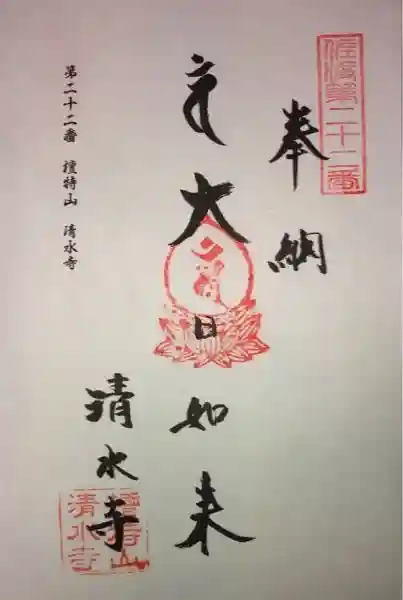 佐渡第二十二番
奉納
大日如来
清水寺
檀特山
清水寺
第二十二番 檀特山 清水寺